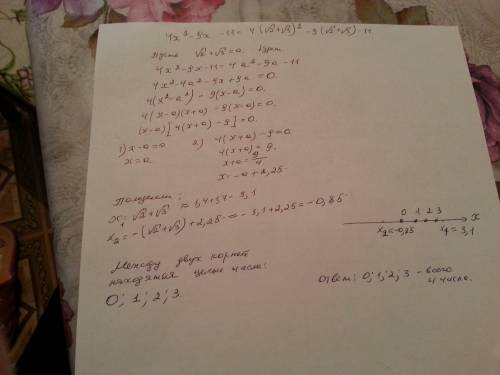 4x² - 9x - 11 = 4(√2+√3)² - 9(√2+√3) - 11
Пусть √2+√3 = a.
4x² - 9x - 11 = 4a² - 9a - 11
4x² - 4a² - 9x + 9a = 0.
4(x² - a²) - 9(x - a) = 0.
4(x-a)(x+a) - 9(x-a) = 0.
(x-a)[4(x+a) - 9] = 0.
1) x - a = 0
x = a.
2) 4(x+a) - 9 = 0.
4(x+a) = 9.
x + a = 9/4
x = -a + 2,25.
Получили:
x₁ = √2+√3 ≈ 1,4+1,7 = 3,1
x₂ = -(√2+√3) + 2,25 ≈ -3,1 + 2,25 = -0,85.
0 1 2 3 x
x₂ = -0,85 x₁ = 3,1
Между двух корней
находятся целые числа:
0; 1; 2; 3.
Ответ: 0; 1; 2; 3 - всего
4 числа.